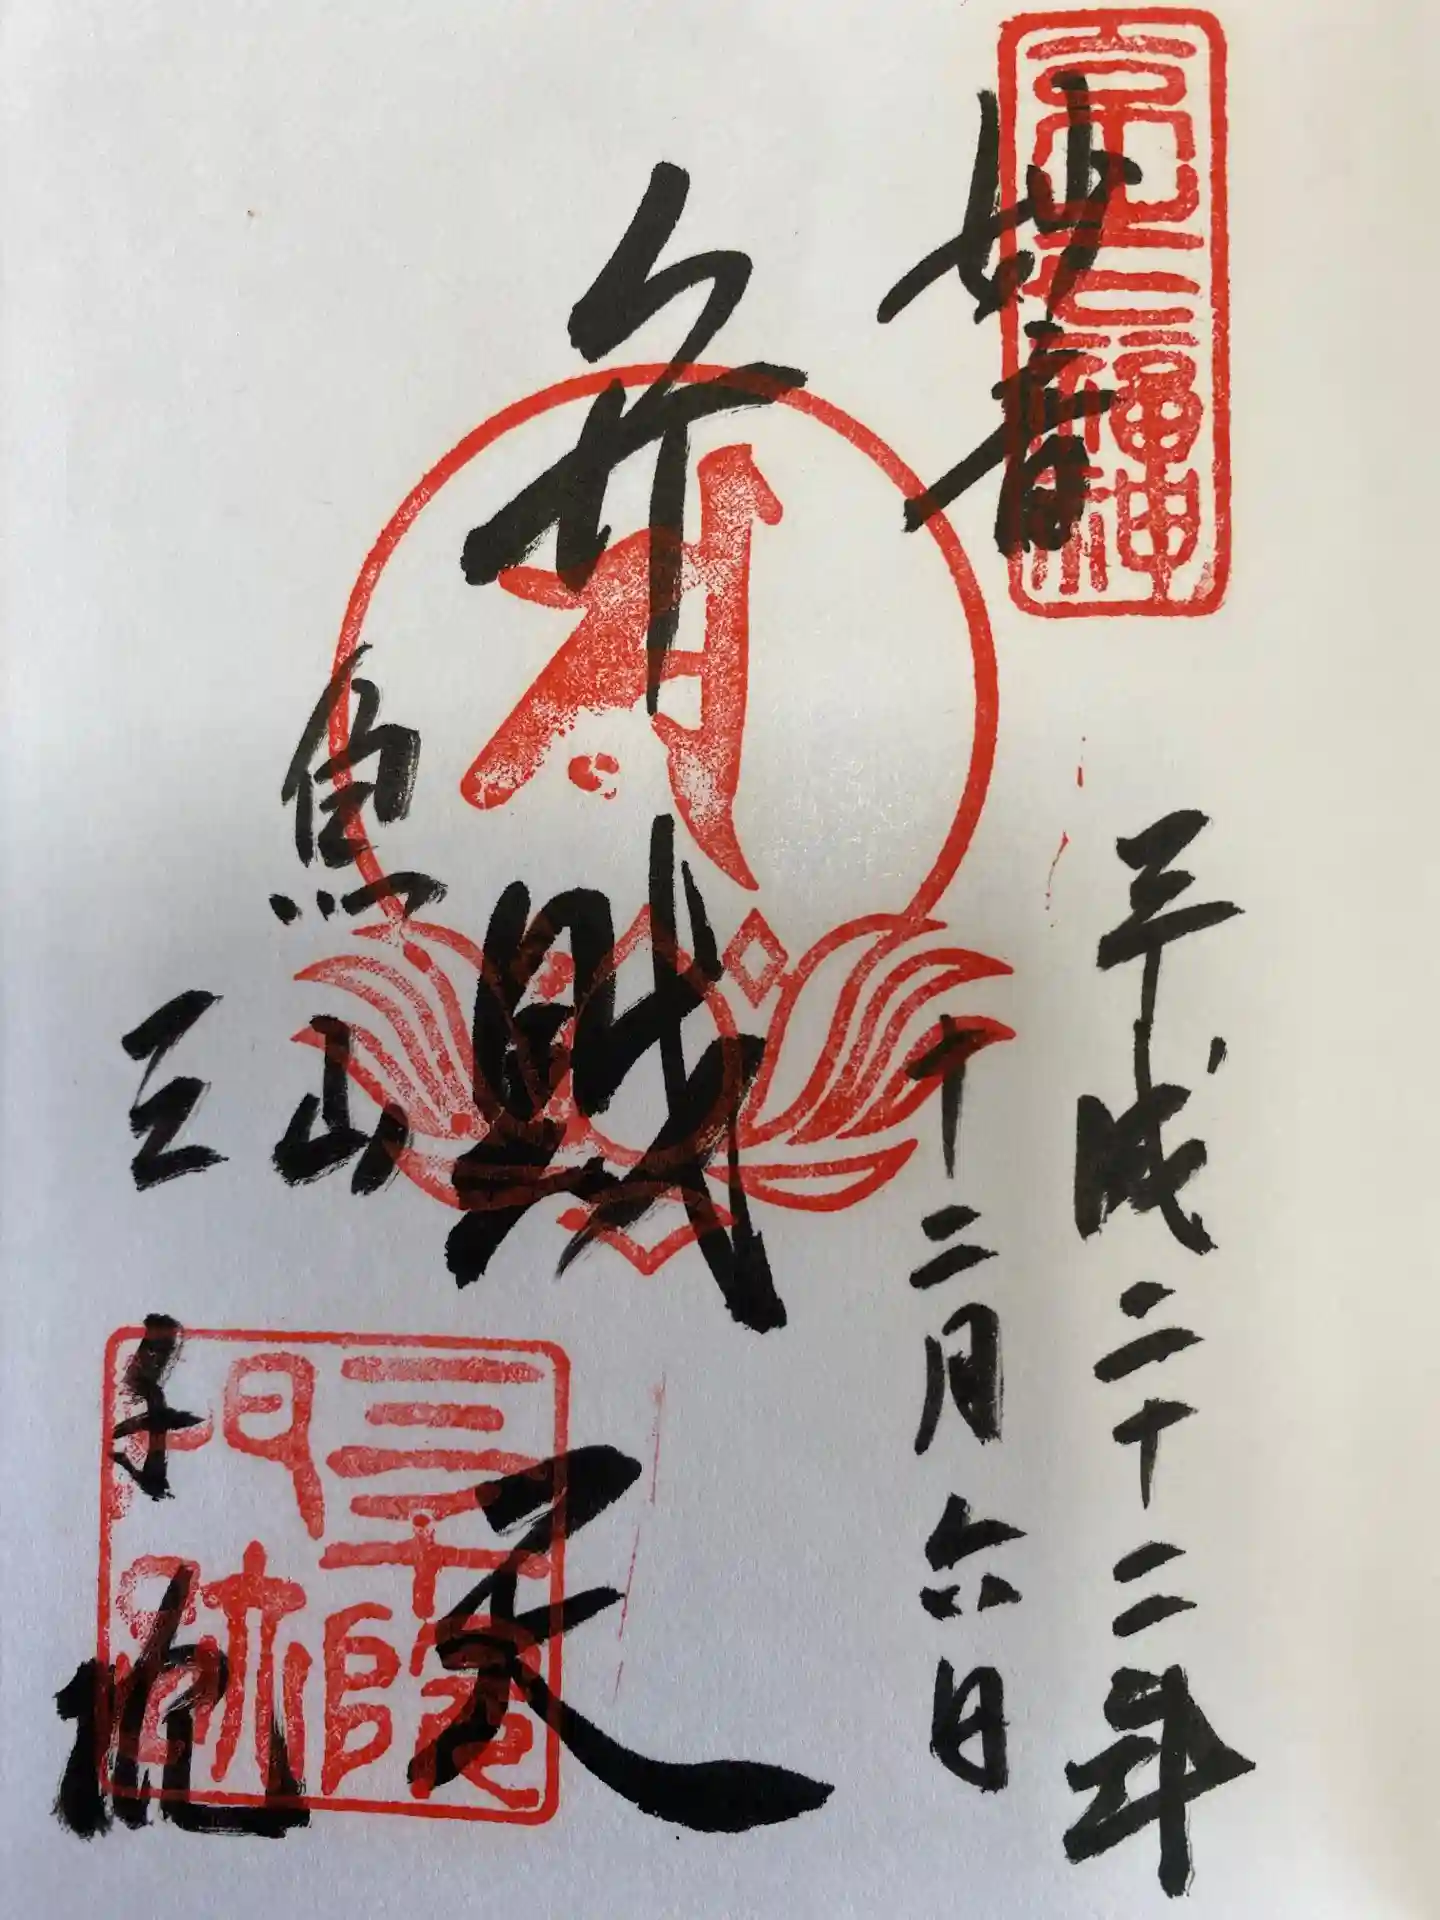 京七福神
妙音
平成二十二年
十二月六日
弁財天
魚山
三千院
三千院
門跡